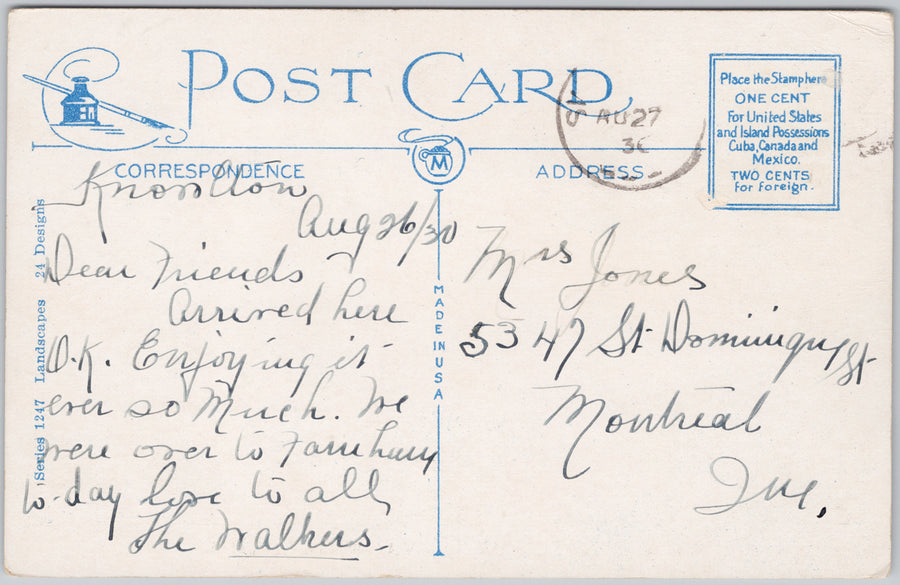 POST CARD
CORRESPONDENCE
ADDRESS
Place the Stamp here
ONE CENT
For United States
and Island Possessions
Cuba, Canada and
Mexico.
TWO CENTS
for foreign.
AU 27
30
M
MADE IN USA
Series 1247 Landscapes 24 Designs
Knowlton
Aug 26/30
Dear Friends
Arrived here
O.K. Enjoying it
ever so Much. We
were over to Farnham
to-day love to all
The Walkers.
Mrs Jones
5347 St Dominique St
Montreal
Que,